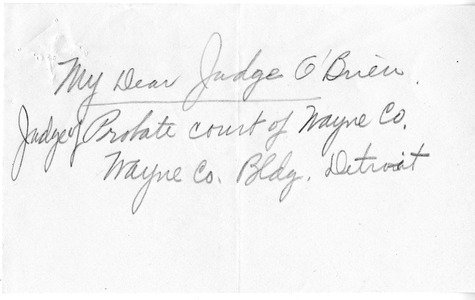 My Dear Judge O'Brien.
Judge of Probate court of Wayne Co.
Wayne Co. Bldg. Detroit